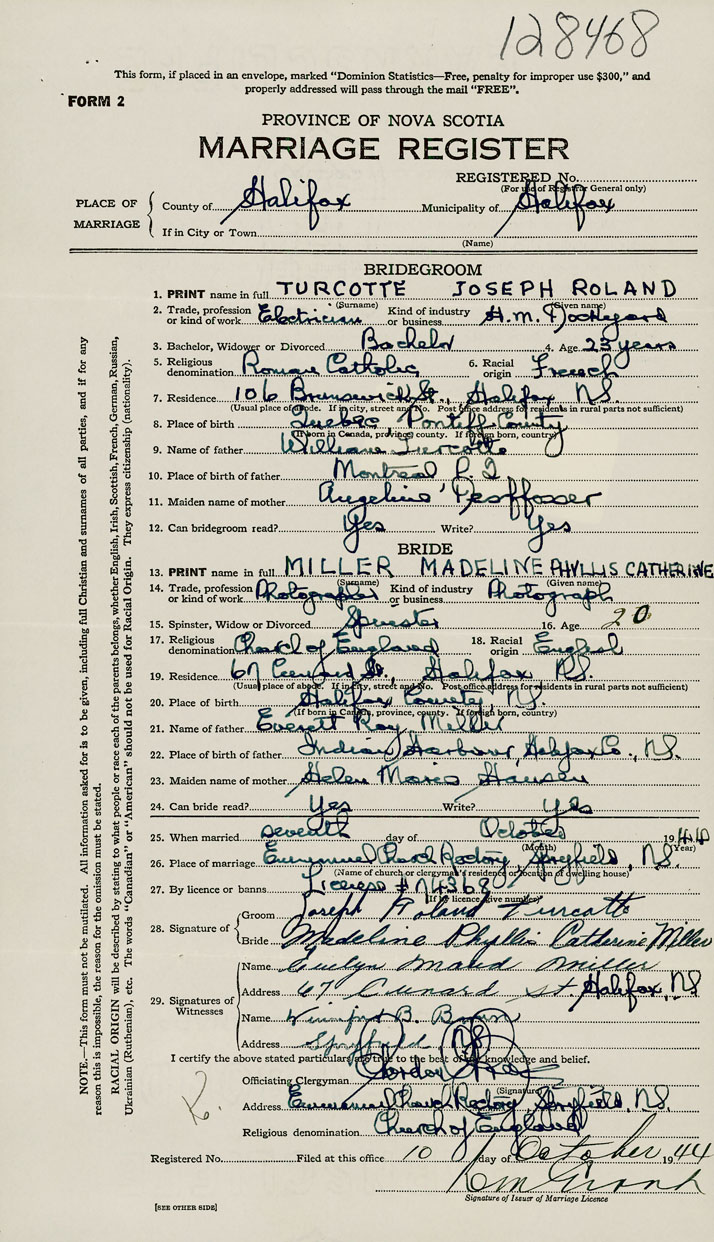 128468
This form, if placed in an envelope, marked "Dominion Statistics—Free, penalty for improper use $300," and
properly addressed will pass through the mail "FREE".
FORM 2
PROVINCE OF NOVA SCOTIA
MARRIAGE REGISTER
REGISTERED No.
(For use of Registrar General only)
PLACE OF MARRIAGE
County of Halifax Municipality of Halifax
If in City or Town
(Name)
BRIDEGROOM
1. PRINT name in full TURCOTTE JOSEPH ROLAND
(Surname) (Given name)
2. Trade, profession or kind of work Electrician Kind of industry or business H.M. Dockyard
3. Bachelor, Widower or Divorced Bachelor 4. Age 23 years
5. Religious denomination Roman Catholic 6. Racial origin French
7. Residence 106 Brunswick St., Halifax N.S.
(Usual place of abode. If in city, street and No. Post office address for residents in rural parts not sufficient)
8. Place of birth Quebec, Pontiff County
(If born in Canada, province, county. If foreign born, country)
9. Name of father William Turcotte
10. Place of birth of father Montreal P.Q
11. Maiden name of mother Angeline
12. Can bridegroom read? Yes Write? Yes
BRIDE
13. PRINT name in full MILLER MADELINE PHYLLIS CATHERINE
(Surname) (Given name)
14. Trade, profession or kind of work Photographer Kind of industry or business Photograph
15. Spinster, Widow or Divorced Spinster 16. Age 20
17. Religious denomination Church of England 18. Racial origin English
19. Residence 67 Cunard St., Halifax N.S.
(Usual place of abode. If in city, street and No. Post office address for residents in rural parts not sufficient)
20. Place of birth Halifax County, N.S.
(If born in Canada, province, county. If foreign born, country)
21. Name of father Everett Ray Miller
22. Place of birth of father Indian Harbour, Halifax Co., N.S.
23. Maiden name of mother Helen Marie Hansen
24. Can bride read? Yes Write? Yes
25. When married seventh day of October 1944
(Month) (Year)
26. Place of marriage Emmanuel Church Rectory, Spryfield, N.S.
(Name of church or clergyman's residence or location of dwelling house)
27. By licence or banns License # N4368
(If by licence, give number)
28. Signature of
Groom Joseph Roland Turcotte
Bride Madeline Phyllis Catherine Miller
29. Signatures of Witnesses
Name Evelyn Maud Miller
Address 67 Cunard St. Halifax, N.S
Name Winifred B. Brown
Address Spryfield N.S.
I certify the above stated particulars are true to the best of my knowledge and belief.
Officiating Clergyman Gordon
(Signature)
Address Emmanuel Church Rectory, Spryfield, N.S.
Religious denomination Church of England
Registered No. Filed at this office 10 day of October 1944
Signature of Issuer of Marriage Licence
[SEE OTHER SIDE]
NOTE.—This form must not be mutilated. All information asked for is to be given, including full Christian and surnames of all parties, and if for any
reason this is impossible, the reason for the omission must be stated.
RACIAL ORIGIN will be described by stating to what people or race each of the parents belongs, whether English, Irish, Scottish, French, German, Russian,
Ukrainian (Ruthenian), etc. The words "Canadian" or "American" should not be used for Racial Origin. They express citizenship (nationality).